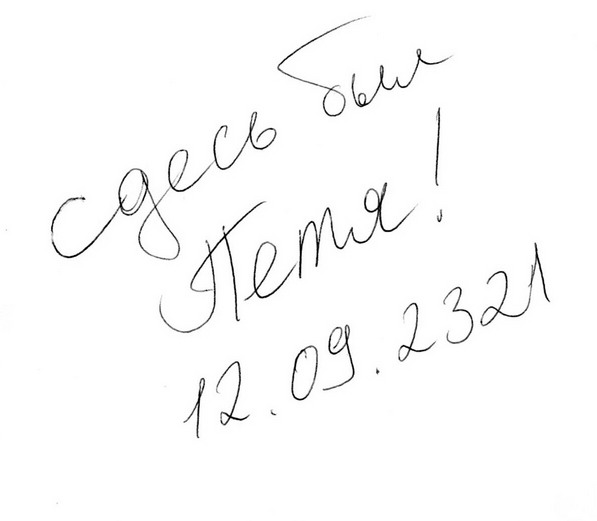 сдесь был
Петя!
12.09.2321